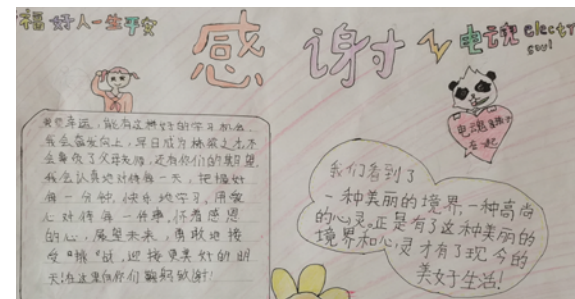 福好人一生平安
感谢
电魂 electr
soul
能有这样好的学习机会,
我会奋发向上,早日成为栋梁之才不
会辜负了父母老师,还有你们的期望.
我会认真地对待每一天,把握好
每一分钟,快乐地学习,用爱
心对待每一件事,怀着感恩
的心,展望未来,勇敢地接
受"挑"战,迎接更美好的明
天!在这里向你们鞠躬致谢!
电魂
在一起
我们看到了
一种美丽的境界,一种高尚
的心灵。正是有了这种美丽的
境界和心灵才有了现今的
美好生活!